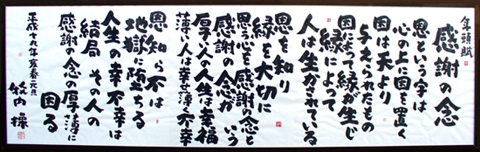 年頭賦
感謝の念
恩という字は
心の上に因を置く
因は天より
与えられたもの
因によって縁が生じ
縁によって
人は生かされている
恩を知り
縁を大切に
思う心を感謝の念と
いう
感謝の念が
厚い人の人生は幸福
薄い人は幸せ薄く不幸
恩知らずは
地獄に堕ちる
人生の幸不幸は
結局その人の
感謝の念の厚さ薄さに
因る
平成十九年亥春元旦
竹内操